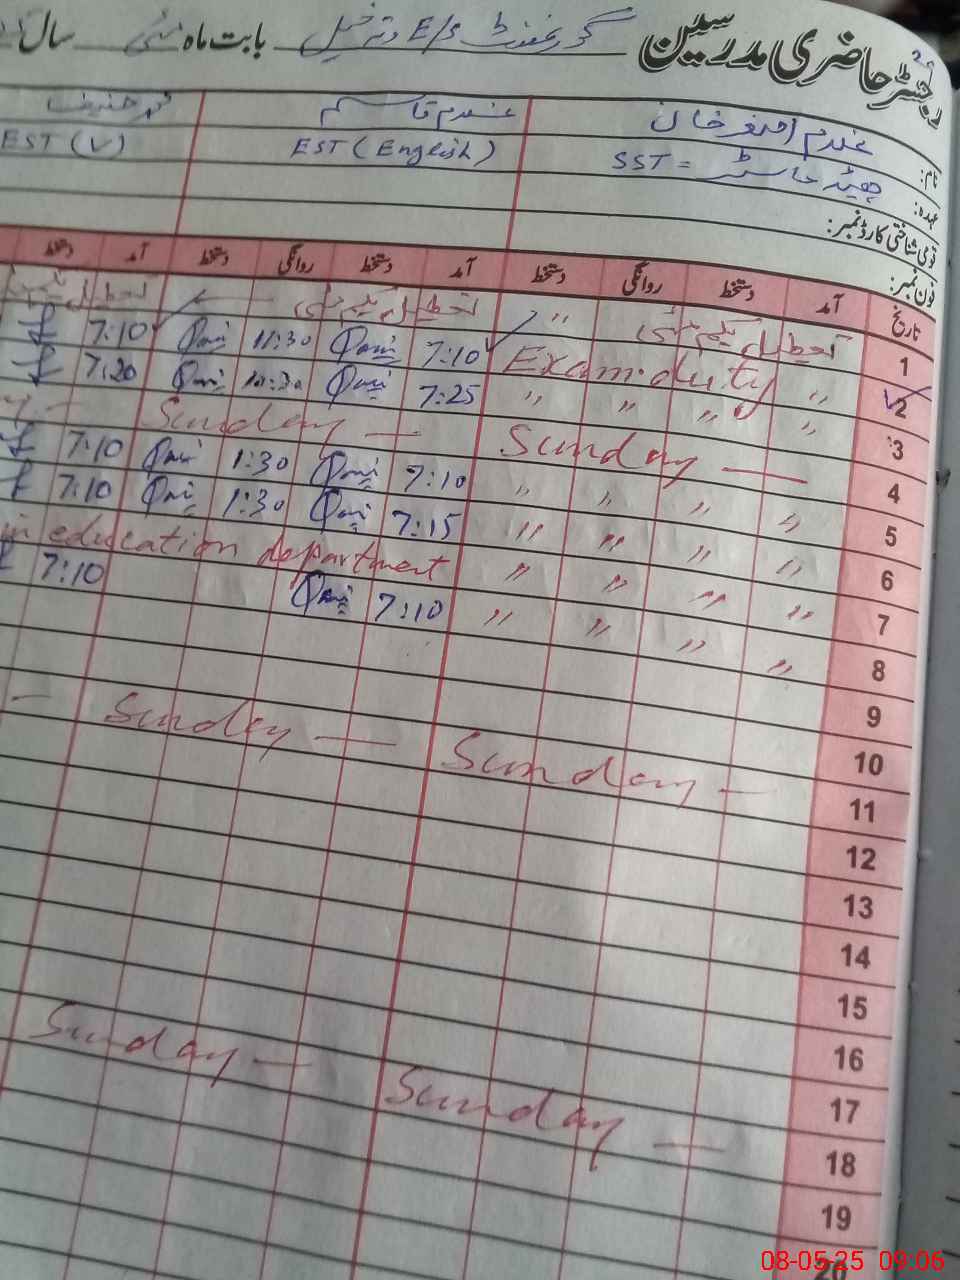 رجسٹر حاضری مدرسین گورنمنٹ E/S وتہ خیل بابت ماہ مئی سال
نام: غلام اصغر خان غلام قاسم محمد حنیف
عہدہ: ہیڈ ماسٹر = SST EST (English) EST (V)
قومی شناختی کارڈ نمبر:
فون نمبر:
تاریخ آمد دستخط روانگی دستخط آمد دستخط روانگی دستخط آمد دستخط
1 تعطیل یکم مئی " تعطیل یکم مئی تعطیل یکم مئی
2 " Exam duty 7:10 11:30 7:10
3 " " " " 7:25 11:30 7:20
4 Sunday — Sunday —
5 " " " " 7:10 1:30 7:10
6 " " " " 7:15 1:30 7:10
7 " " " " in education department
8 " " " " 7:10 7:10
9
10
11 Sunday — Sunday —
12
13
14
15
16
17
18 Sunday — Sunday —
19
20
08-05-25 09:06